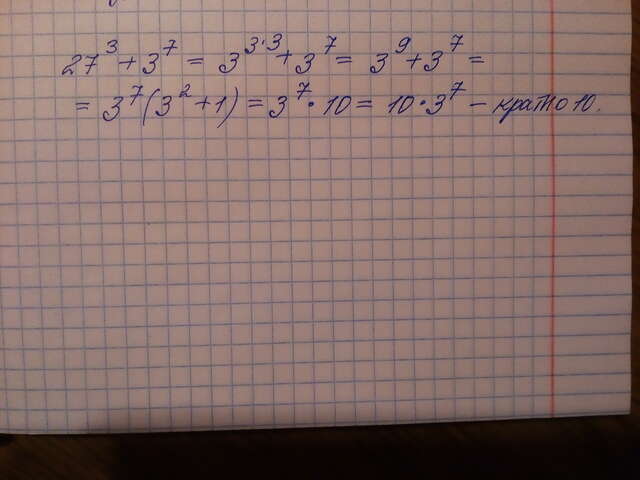 27³ + 3⁷ = 3³·³ + 3⁷ = 3⁹ + 3⁷ =
= 3⁷(3² + 1) = 3⁷ · 10 = 10 · 3⁷ – кратно 10.